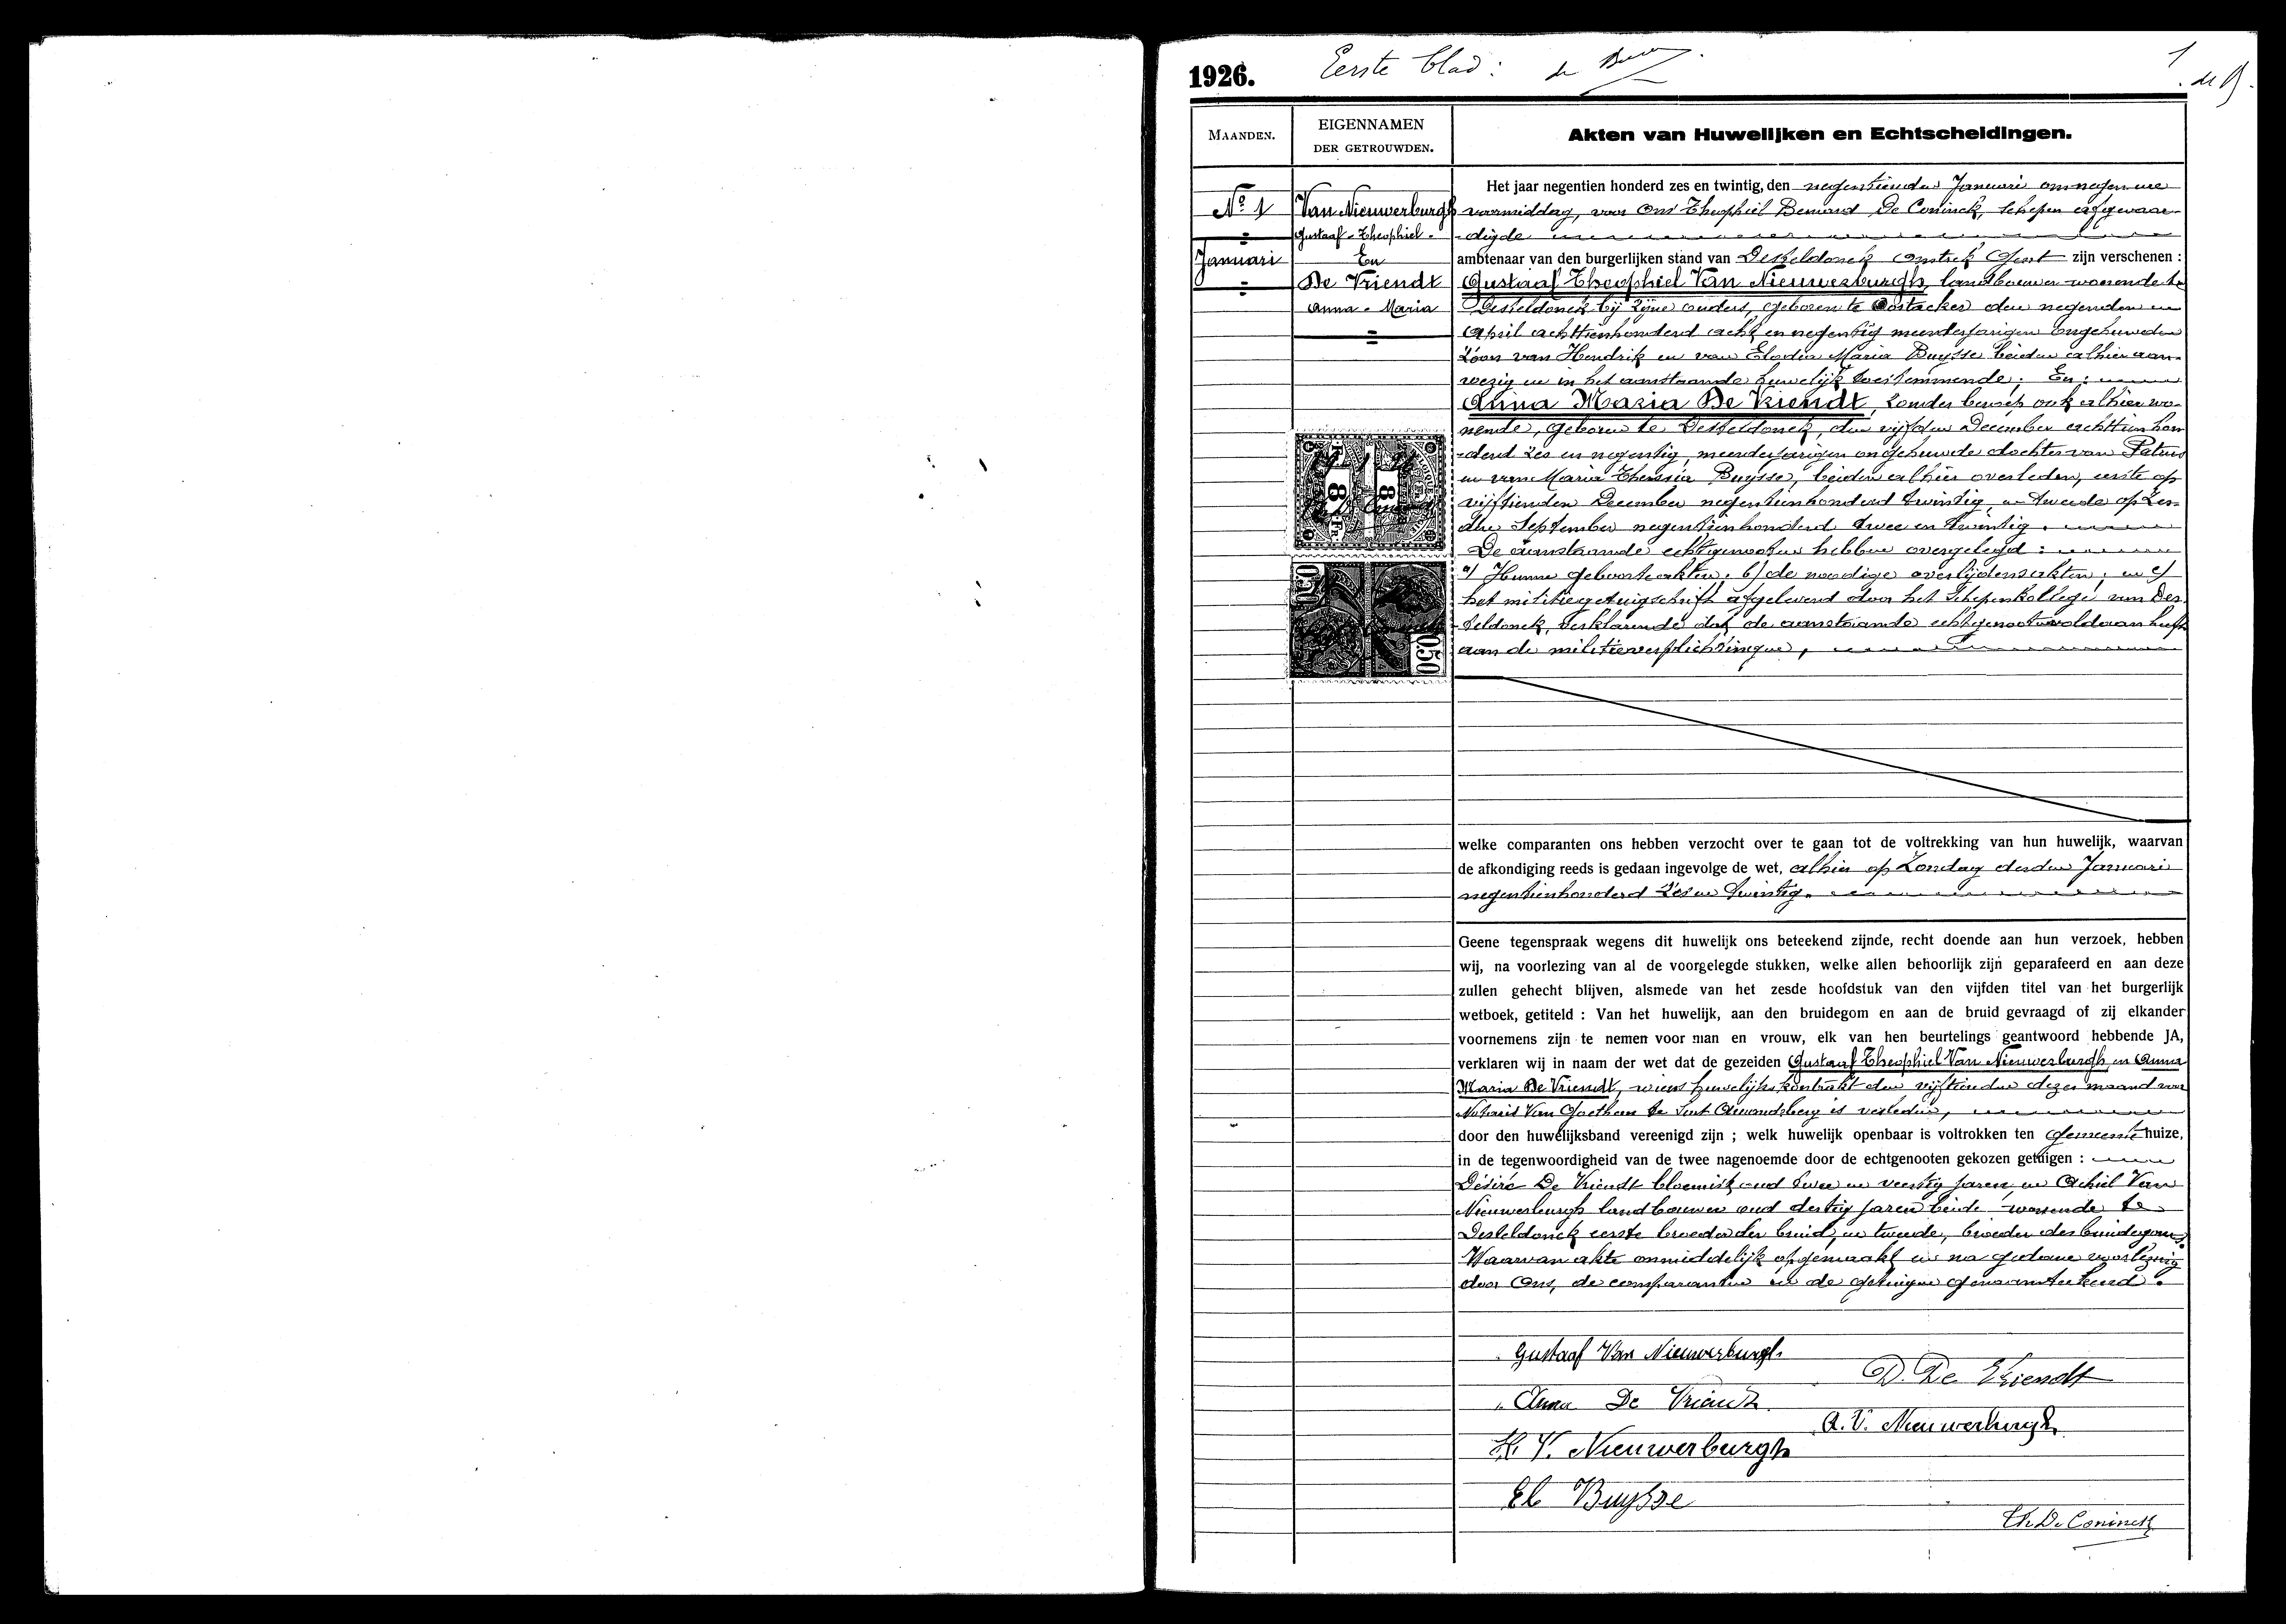 1926.
Eerste blad :
1
MAANDEN.
EIGENNAMEN
DER GETROUWDEN.
Akten van Huwelijken en Echtscheidingen.
No 1
Januari
Van Nieuwerburgh
Gustaaf-Theophiel-
En
De Vriendt
Anna-Maria
Het jaar negentien honderd zes en twintig, den negentienden Januari om negen ure
voormiddag, voor Ons Theophiel Bernard De Coninck, schepen afgevaar-
-digde
ambtenaar van den burgerlijken stand van Desteldonck omstrek Gent zijn verschenen :
Gustaaf Theophiel Van Nieuwerburgh, landbouwer wonende te
Desteldonck bij zijne ouders, geboren te Oostacker den negenden
April achttienhonderd acht en negentig meerderjarigen ongehuwden
zoon van Hendrik en van Elodia Maria Buysse beiden alhier aan-
wezig en in het aanstaande huwelijk toestemmende. En :
Anna Maria De Vriendt, zonder beroep ook alhier wo-
nende, geboren te Desteldonck, den vijfden December achttien hon
-derd zes en negentig, meerderjarigen ongehuwde dochter van Petrus
en van Maria Theresia Buysse, beiden alhier overleden, eerste op
vijftienden December negentienhonderd twintig, en tweede op
September negentienhonderd twee en twintig.
De aanstaande echtgenooten hebben overgelegd :
a) Hunne geboorteakten, b) de noodige overlijdensakten, en c)
het militiegetuigschrift afgeleverd door het Schepenkollege van Des-
teldonck, verklarende dat de aanstaande echtgenoot voldaan heeft
aan de militieverplichtingen,
8 8
0.50
0.50
welke comparanten ons hebben verzocht over te gaan tot de voltrekking van hun huwelijk, waarvan
de afkondiging reeds is gedaan ingevolge de wet, alhier op Zondag derden Januari
negentienhonderd zes en twintig.
Geene tegenspraak wegens dit huwelijk ons beteekend zijnde, recht doende aan hun verzoek, hebben
wij, na voorlezing van al de voorgelegde stukken, welke allen behoorlijk zijn geparafeerd en aan deze
zullen gehecht blijven, alsmede van het zesde hoofdstuk van den vijfden titel van het burgerlijk
wetboek, getiteld : Van het huwelijk, aan den bruidegom en aan de bruid gevraagd of zij elkander
voornemens zijn te nemen voor man en vrouw, elk van hen beurtelings geantwoord hebbende JA,
verklaren wij in naam der wet dat de gezeiden Gustaaf Theophiel Van Nieuwerburgh en Anna
Maria De Vriendt, wiens huwelijkskontrakt den vijftienden dezer maand voor
Notaris Van Goethem te Sint Amandsberg is verleden,
door den huwelijksband vereenigd zijn ; welk huwelijk openbaar is voltrokken ten Gemeentehuize,
in de tegenwoordigheid van de twee nagenoemde door de echtgenooten gekozen getuigen :
Désiré De Vriendt bloemist oud twee en veertig jaren, en Achiel Van
Nieuwerburgh landbouwer oud dertig jaren beide wonende te
Desteldonck eerste broeder der bruid, en tweede, broeder des bruidegoms.
Waarvan akte onmiddelijk opgemaakt en na gedane voorlezing
door Ons, de comparanten en de getuigen genaamteekend.
Gustaaf Van Nieuwerburgh
D. De Vriendt
Anna De Vriendt
A. V. Nieuwerburgh
H. V. Nieuwerburgh
El Buysse
Th De Coninck